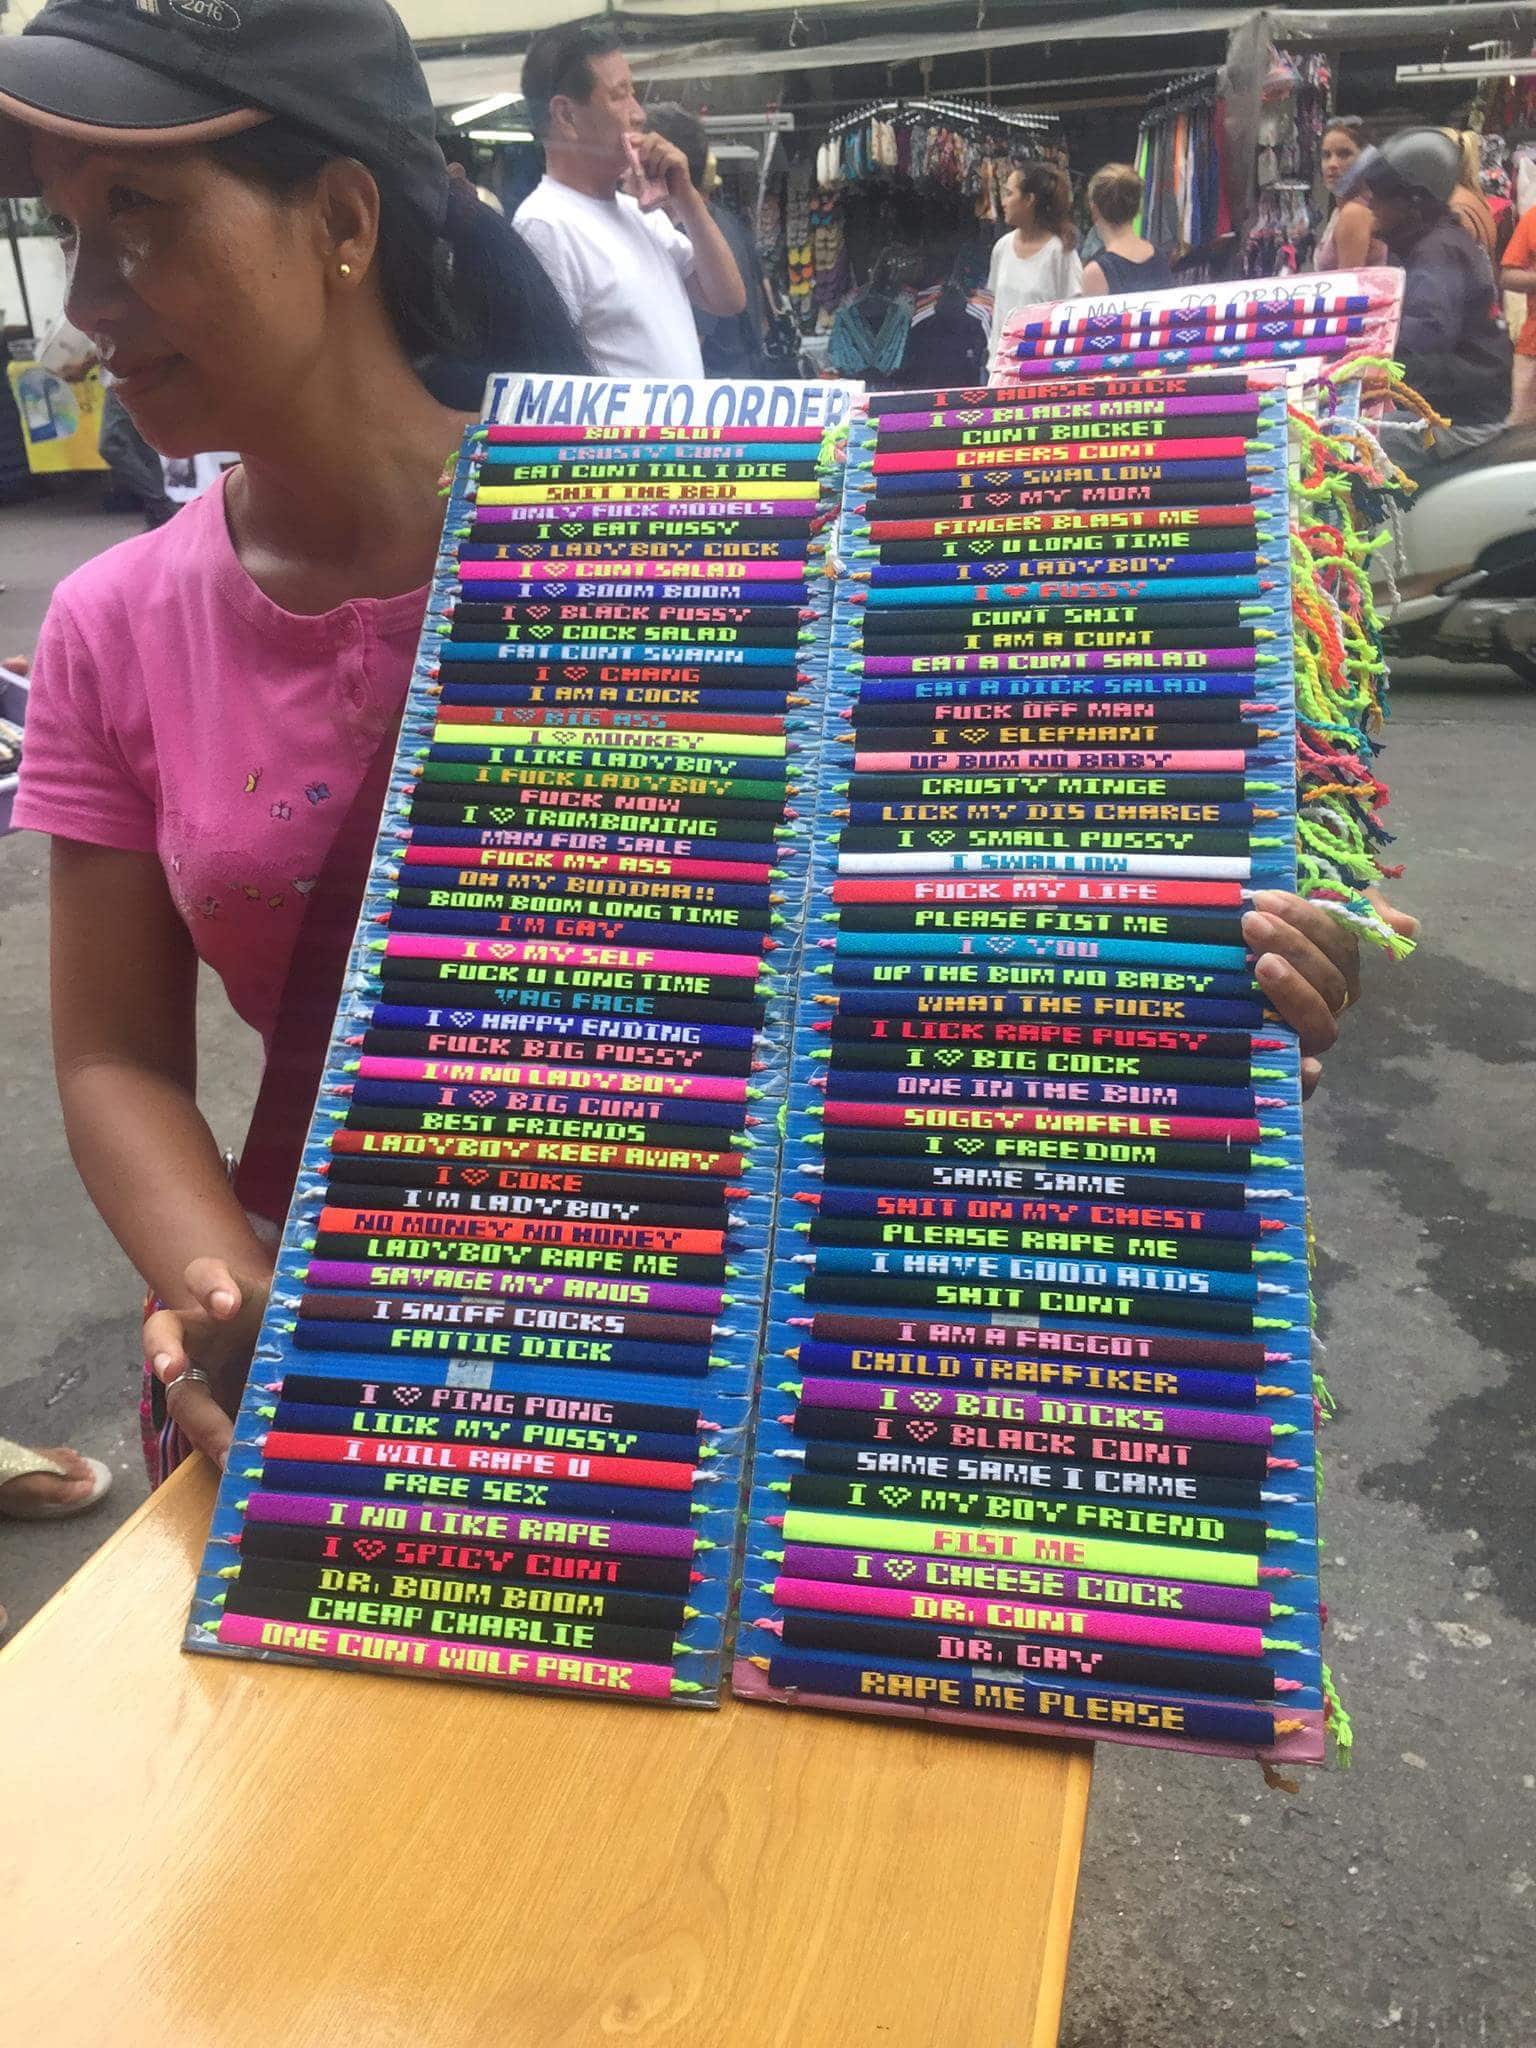 2016
I MAKE TO ORDER
I MAKE TO ORDER
BUTT SLUT
CRUSTY CUNT
EAT CUNT TILL I DIE
SHIT THE BED
ONLY FUCK MODELS
I ♡ EAT PUSSY
I ♡ LADYBOY COCK
I ♡ CUNT SALAD
I ♡ BOOM BOOM
I ♡ BLACK PUSSY
I ♡ COCK SALAD
FAT CUNT SWANN
I ♡ CHANG
I AM A COCK
I ♡ BIG ASS
I ♡ MONKEY
I LIKE LADYBOY
I FUCK LADYBOY
FUCK NOW
I ♡ TROMBONING
MAN FOR SALE
FUCK MY ASS
OH MY BUDDHA!!
BOOM BOOM LONG TIME
I'M GAY
I ♡ MY SELF
FUCK U LONG TIME
VAG FACE
I ♡ HAPPY ENDING
FUCK BIG PUSSY
I'M NO LADYBOY
I ♡ BIG CUNT
BEST FRIENDS
LADYBOY KEEP AWAY
I ♡ COKE
I'M LADYBOY
NO MONEY NO HONEY
LADYBOY RAPE ME
SAVAGE MY ANUS
I SNIFF COCKS
FATTIE DICK
I ♡ PING PONG
LICK MY PUSSY
I WILL RAPE U
FREE SEX
I NO LIKE RAPE
I ♡ SPICY CUNT
DR. BOOM BOOM
CHEAP CHARLIE
ONE CUNT WOLF PACK
I ♡ HORSE DICK
I ♡ BLACK MAN
CUNT BUCKET
CHEERS CUNT
I ♡ SWALLOW
I ♡ MY MOM
FINGER BLAST ME
I ♡ U LONG TIME
I ♡ LADYBOY
I ♥ PUSSY
CUNT SHIT
I AM A CUNT
EAT A CUNT SALAD
EAT A DICK SALAD
FUCK OFF MAN
I ♡ ELEPHANT
UP BUM NO BABY
CRUSTY MINGE
LICK MY DIS CHARGE
I ♡ SMALL PUSSY
I SWALLOW
FUCK MY LIFE
PLEASE FIST ME
I ♡ YOU
UP THE BUM NO BABY
WHAT THE FUCK
I LICK RAPE PUSSY
I ♡ BIG COCK
ONE IN THE BUM
SOGGY WAFFLE
I ♡ FREEDOM
SAME SAME
SHIT ON MY CHEST
PLEASE RAPE ME
I HAVE GOOD AIDS
SHIT CUNT
I AM A FAGGOT
CHILD TRAFFIKER
I ♡ BIG DICKS
I ♡ BLACK CUNT
SAME SAME I CAME
I ♡ MY BOY FRIEND
FIST ME
I ♡ CHEESE COCK
DR. CUNT
DR. GAY
RAPE ME PLEASE